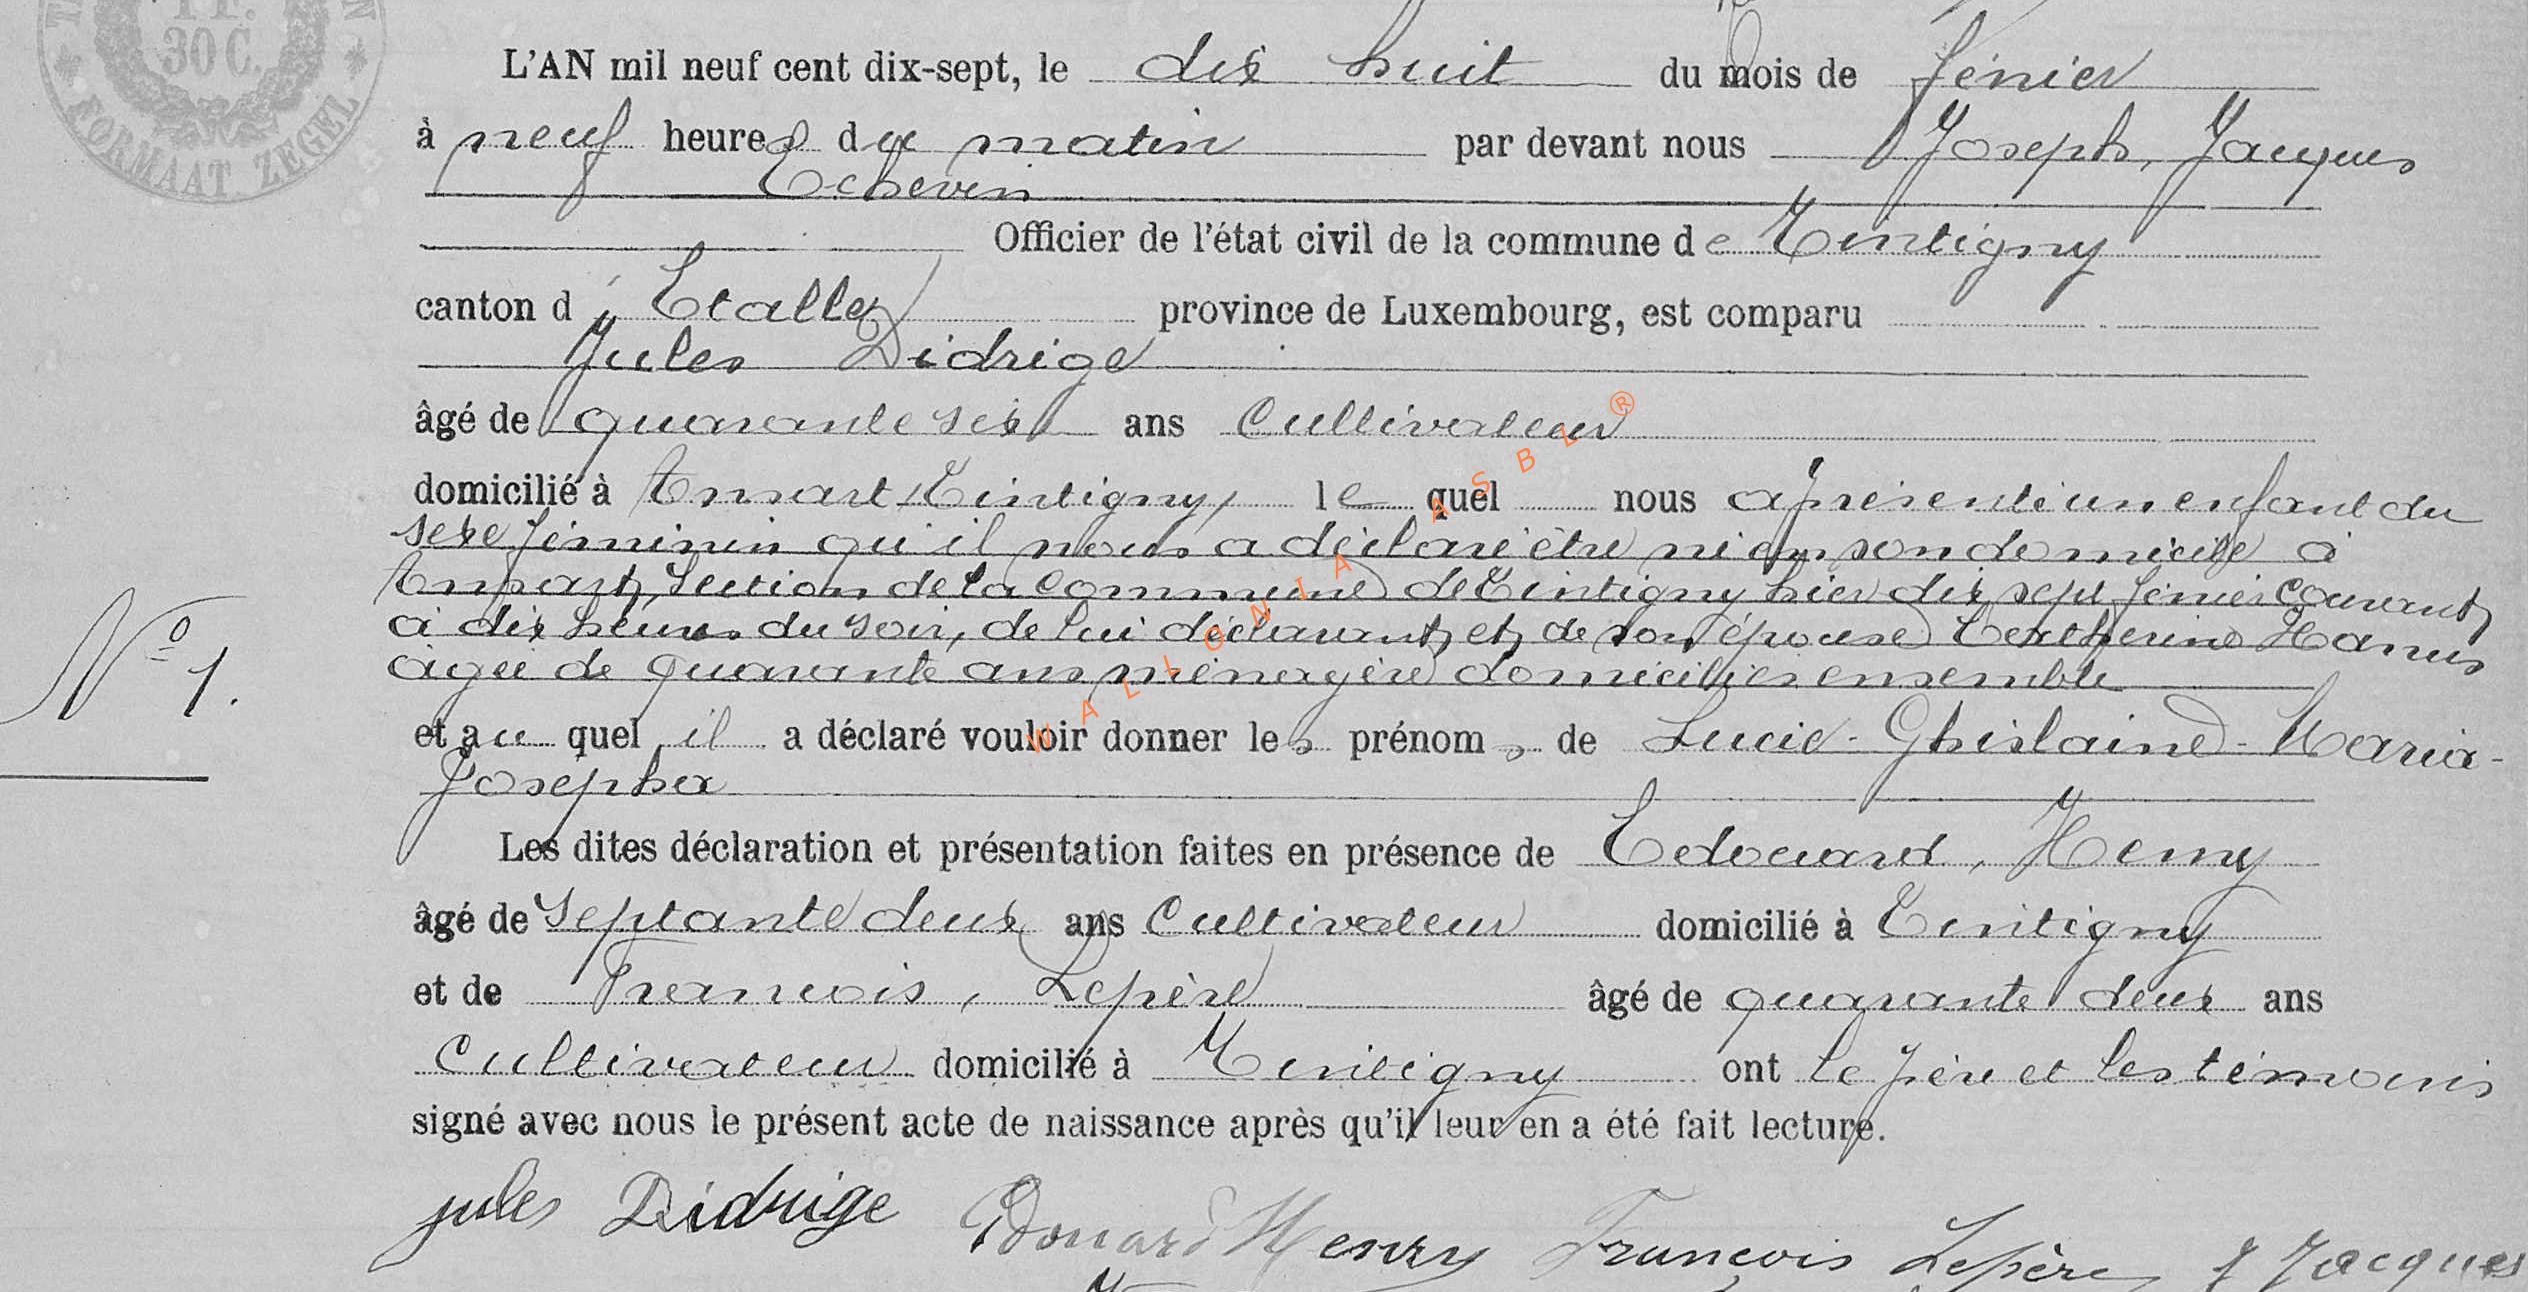 30 C.
FORMAAT ZEGEL
L'AN mil neuf cent dix-sept, le dix huit du mois de février
à neuf heures du matin par devant nous Joseph, Jacques
Echevin
Officier de l'état civil de la commune de Tintigny
canton d' Etalle, province de Luxembourg, est comparu
Jules Didrige
âgé de quarante six ans Cultivateur
domicilié à Ansart, Tintigny, le quel nous a présenté un enfant du
sexe féminin qu'il nous a déclaré être né en son domicile à
Ansart, Section de la commune de Tintigny hier dix sept février courant,
à dix heures du soir, de lui déclarant, et de son épouse Catherine Hanus
âgée de quarante ans ménagère domiciliés ensemble
et au quel il a déclaré vouloir donner les prénoms de Lucie - Ghislaine - Maria -
Josepha
Les dites déclaration et présentation faites en présence de Edouard, Henry
âgé de septante deux ans Cultivateur domicilié à Tintigny
et de Francois, Lepère âgé de quarante deux ans
Cultivateur domicilié à Tintigny ont le père et les témoins
signé avec nous le présent acte de naissance après qu'il leur en a été fait lecture.
Jules Didrige Edouard Henry François Lepère J Jacques
N° 1.
WALLONIA ASBL ®